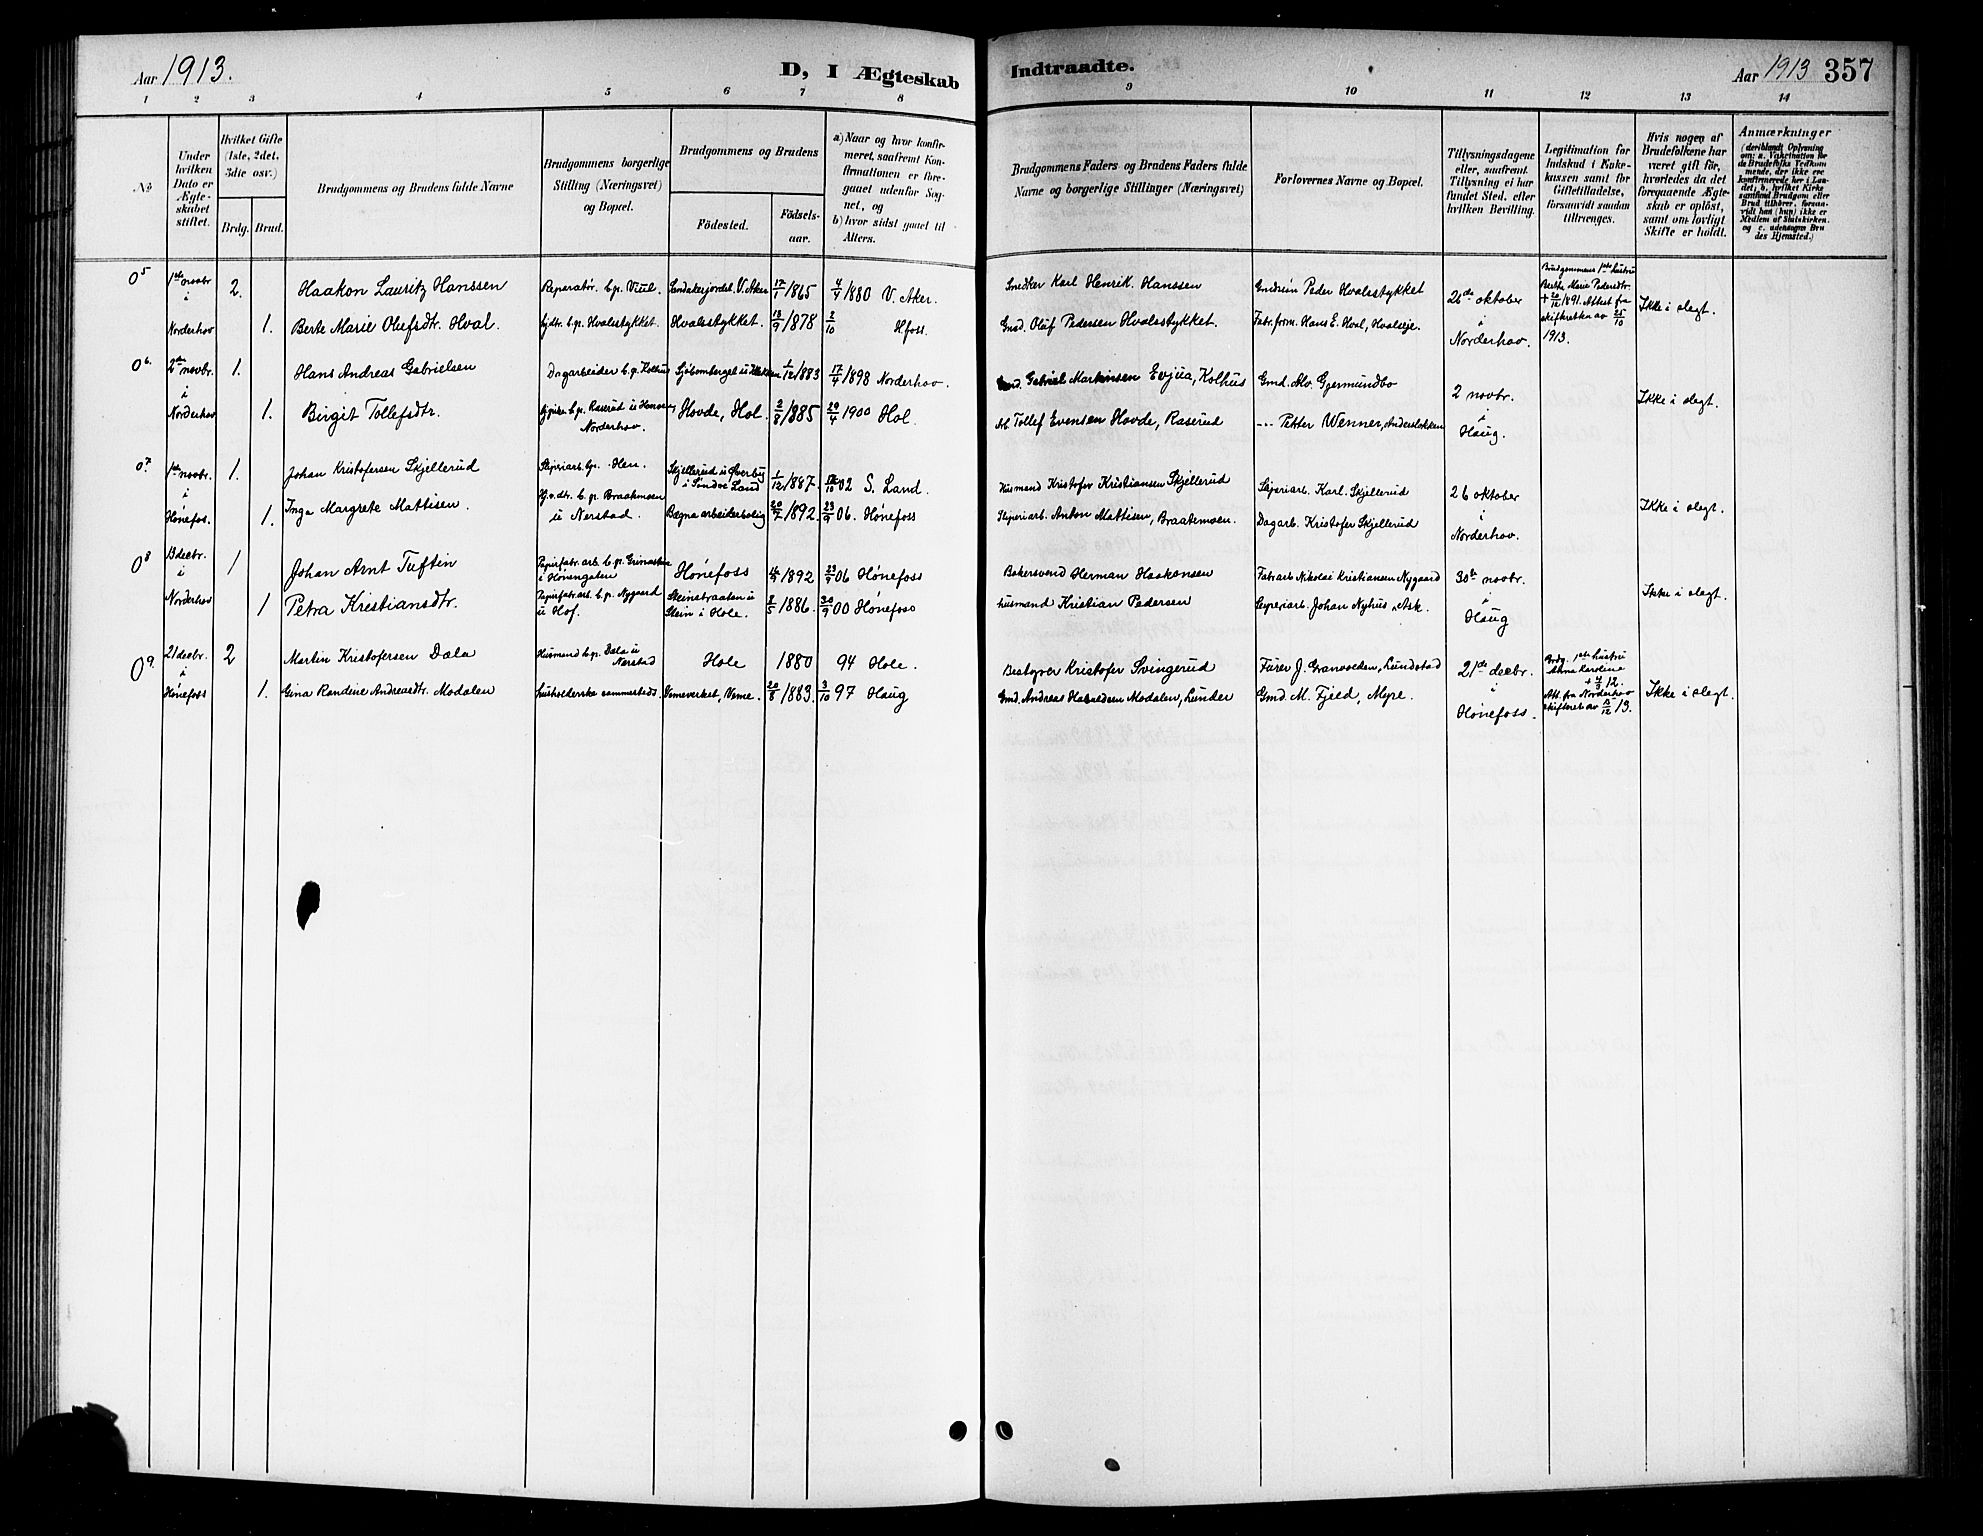 Aar 1913.
D, I Ægteskab
Indtraadte.
Aar 1913 357
1 2 3 4 5 6 7 8 9 10 11 12 13 14
No
Under hvilken Dato er Ægte-skabet stiftet.
Hvilket Gifte (1ste, 2det, 3die osv.)
Brdg. Brud.
Brudgommens og Brudens fulde Navne
Brudgommens borgerlige Stilling (Næringsvei) og Bopæl.
Brudgommens og Brudens
Födested.
Födsels-aar.
a) Naar og hvor konfir-meret, saafremt Kon-firmationen er fore-gaaet udenfor Sog-net, og
b) hvor sidst gaaet til Alters.
Brudgommens Faders og Brudens Faders fulde Navne og borgerlige Stillinger (Næringsvei)
Forlovernes Navne og Bopæl.
Tillysningsdagene eller, saafremt Tillysning ei har fundet Sted, efter hvilken Bevilling.
Legitimation for Indskud i Enke-kassen samt for Giftetilladelse, forsaavidt saadan tiltrænges.
Hvis nogen af Brudefolkene har været gift för, hvorledes da det foregaaende Ægte-skab er oplöst, samt om lovligt Skifte er holdt.
Anmærkninger
05 1ste novbr i Norderhov
2. Haakon Lauritz Hanssen Reparatør. b.p. Viul. V. Aker 17/1 1865 4/4 1880 V. Aker. Smedker Karl Henrik Hanssen Peder Hvalsstykket 26de oktober i Norderhov. Brudgommens 1ste hustru Berthe Marie Pedersdtr. + 20/12 1891. Attest fra skifteretten av 25/10 1913. Ikke i slegt.
1. Berte Marie Olufsdtr. Hval. b.p. Hvalsstykket. Hvalsstykket. 13/9 1878 2/10 H.foss. Gmd. Oluf Pedersen Hvalsstykket. Fabr.form. Hans E. Hval, Hvalseje.
06. 2den novbr. i Norderhov
1. Hans Andreas Gabrielsen Dagarbeider b.p. Kolhus 1/12 1883 17/4 1898 Norderhov. Gabriel Martinsen Evjua, Kolhus Gmd. Alv. Gjermundbo 2 novbr. i Haug. Ikke i slegt.
1. Birgit Tollefsdtr. b.p. Raserud Norderhov. Hovde, Hol. 2/8 1885 29/4 1900 Hol. Arb Tollef Evensen Hovde, Raserud --- Petter Wenner,
07. 1ste novbr. i Hønefos.
1. Johan Kristofersen Skjellerud Sliperiarb. b.p. Hen. Skjellerud u Øverby i Søndre Land 1/12 1887. 02 S. Land. Husmand Kristofer Kristiansen Skjellerud Sliperiarb. Karl. Skjellerud 26 oktober i Norderhov. Ikke i slegt.
1. Inga Margrete Mattisen. b.p. Braatemoen u Nerstad. Bægna arbeiderbolig 20/7 1892. 23/9 06. Hønefoss Sliperiarb. Anton Mattisen, Braatemoen. Dagarb. Kristofer Skjellerud
08 13 decbr. i Norderhov
1 Johan Arnt Tuftin Papirfabr. arb. b.p. i Honsgaten Hønefoss 1892 23/9 06 Hønefoss Bakersvend Herman Haakonsen Fabrarb Nikolai Kristiansen Nygaard 30te novbr. i Haug Ikke i slegt.
1 Petra Kristiansdtr. Papirfabr.arb. b.p. Nygaard u Hof. Steinstraaten u Stein i Hole. 8/5 1886. 30/9 00 Hønefoss husmand Kristian Pedersen Johan Nyhus, Ask.
09. 21 decbr. i Hønefoss
2 Martin Kristofersen Dala Husmand b.p. Dala u Nerstad Hole 1880 94 Hole. Kristofer Svingerud J. Granvolden, Lundstad 21de decbr. i Hønefoss. Brdg. 1ste hustru Karoline + 4/3 12. Att. fra Norderhov skifteret av 15/12 13. Ikke i slegt.
1. Gina Randine Andreasdtr. Modalen husholderske sammesteds. Vemeverket, Veme. 20/8 1883. 3/10 97 Haug Gmd. Andreas Modalen, Lunder Gmd M. Fjeld, Myre.